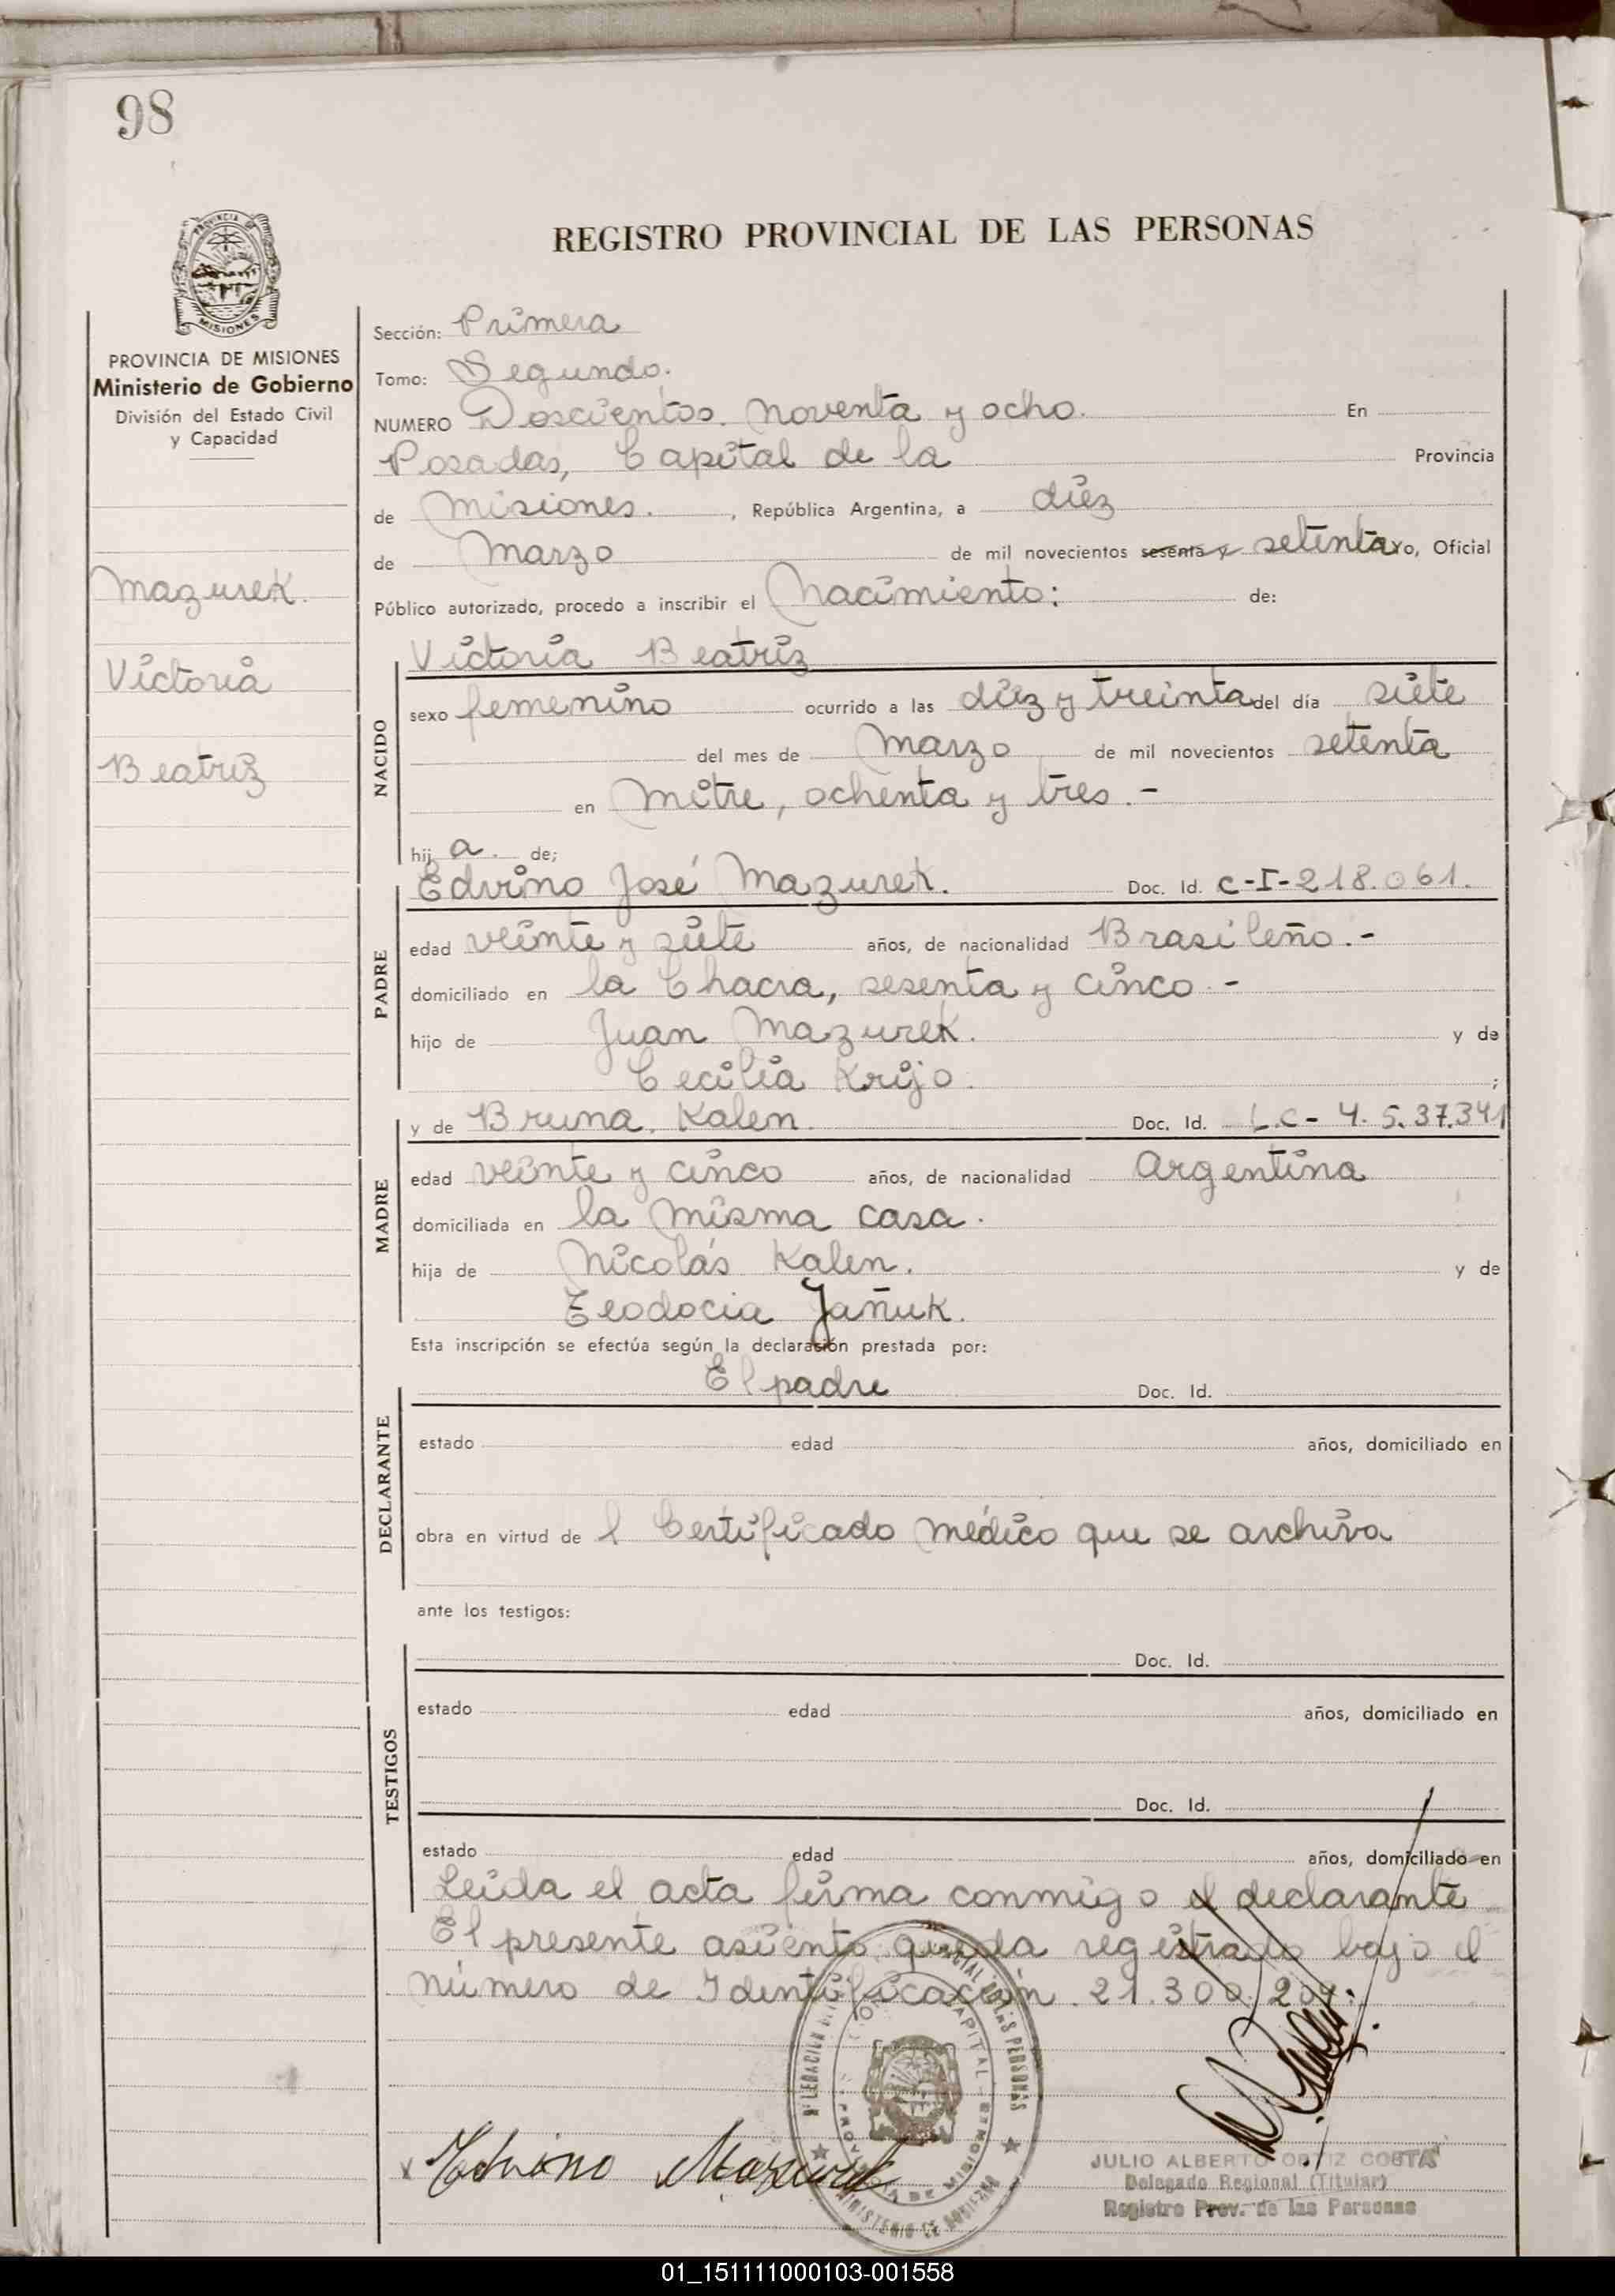 98
REGISTRO PROVINCIAL DE LAS PERSONAS
PROVINCIA DE
MISIONES
PROVINCIA DE MISIONES
Ministerio de Gobierno
División del Estado Civil
y Capacidad
Mazurek.
Victoria
Beatriz
Sección: Primera
Tomo: Segundo.
NUMERO Doscientos. noventa y ocho. En
Posadas, Capital de la Provincia
de Misiones. , República Argentina, a diez
de Marzo de mil novecientos sesenta y setenta yo, Oficial
Público autorizado, procedo a inscribir el Nacimiento: de:
NACIDO
Victoria Beatriz
sexo femenino ocurrido a las diez y treinta del día siete
del mes de Marzo de mil novecientos setenta
en Mitre, ochenta y tres.-
hij a. de;
PADRE
Edvino José Mazurek. Doc. Id. C-I-218.061.
edad veinte y siete años, de nacionalidad Brasileño.-
domiciliado en la Chacra, sesenta y cinco.-
hijo de Juan Mazurek. y de
Cecilia Krijo. ;
MADRE
y de Bruna. Kalen. Doc. Id. L.C- 4.5.37.341
edad veinte y cinco años, de nacionalidad Argentina
domiciliada en la misma casa.
hija de Nicolás Kalen. y de
Teodocia Jañuk.
Esta inscripción se efectúa según la declaración prestada por:
DECLARANTE
El padre Doc. Id.
estado edad años, domiciliado en
obra en virtud de l Certificado médico que se archiva
ante los testigos:
TESTIGOS
Doc. Id.
estado edad años, domiciliado en
Doc. Id.
estado edad años, domiciliado en
Leída el acta firma conmigo el declarante
El presente asiento queda registrado bajo el
número de Identificación 21.300.209.
Edvino Mazurek
JULIO ALBERTO ORTIZ COSTA
Delegado Regional (Titular)
Registro Prov. de las Personas
01_151111000103-001558